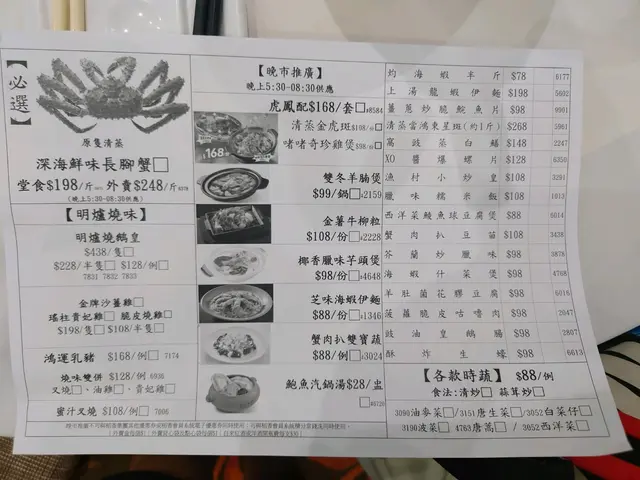 【必選】
原隻清蒸
深海鮮味長腳蟹□
堂食$198/斤 外賣$248/斤
(晚上5:30-08:30供應)
【明爐燒味】
明爐燒鵝皇
$438/隻□
$228/半隻□ $128/例□
7831 7832 7833
金牌沙薑雞□
瑤柱貴妃雞□ 脆皮燒雞□
$198/隻□ $108/半隻□
鴻運乳豬 $168/例□ 7174
燒味雙併 $128/例 6936
叉燒□、油雞□、貴妃雞□
蜜汁叉燒 $108/例□ 7606
【晚市推廣】
晚上5:30-08:30供應
虎鳳配$168/套□#8584
清蒸金虎斑$108/份□
啫啫奇珍雞煲$98/份□
$168
雙冬羊腩煲
$99/鍋□#2159
金薯牛柳粒
$108/份□#2228
椰香臘味芋頭煲
$98/份□#4648
芝味海蝦伊麵
$88/份□#1346
蟹肉扒雙寶蔬
$88/例□#3024
鮑魚汽鍋湯$28/盅
□#6720
灼海蝦半斤 $78 6177
上湯龍蝦伊麵 $198 5692
薑蔥炒脆脘魚片 $98 9901
清蒸當鴻東星斑(約1斤) $268 5961
高豉蒸白鱔 $148 2247
XO醬爆螺片 $128 6350
漁村小炒皇 $108 3291
臘味糯米飯 $108 1013
西洋菜鯪魚球豆腐煲 $88 6014
蟹肉扒豆苗 $108 3438
芥蘭炒臘味 $98 3878
海蝦什菜煲 $98 4768
羊肚菌花膠豆腐 $98 6016
菠蘿脆皮咕嚕肉 $98 2047
豉油皇鵝腸 $98 2807
酥炸生蠔 $98 6613
【各款時蔬】 $88/例
食法:清炒□ 蒜茸炒□
3090油麥菜□/3151唐生菜□/3052白菜仔□
3190波菜□/ 4763唐蒿□/ 3052西洋菜□